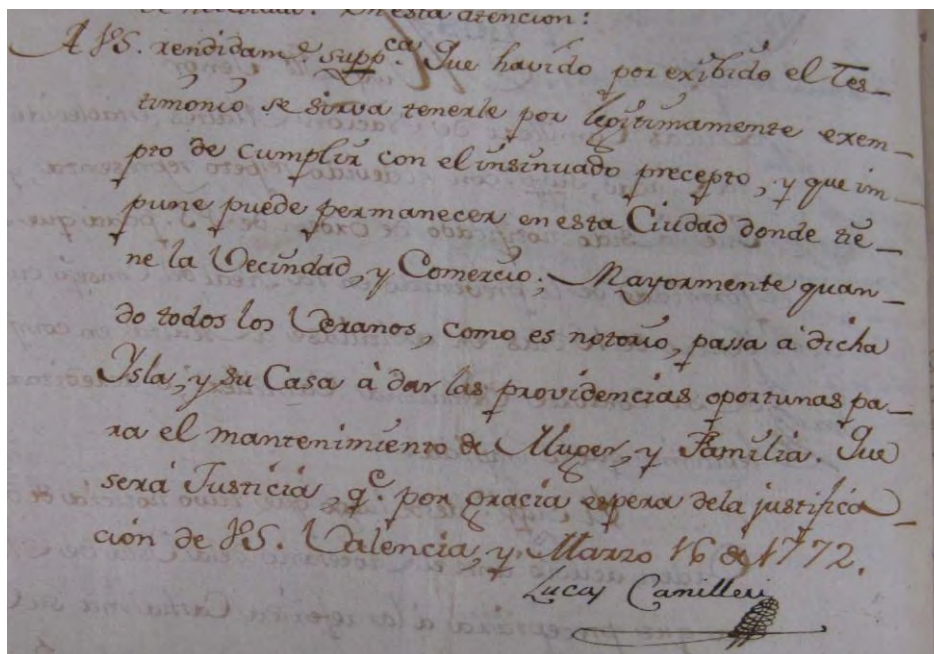 de necesidad. En esta atencion:
A VS. rendidam.e supp.ca Que havido por exibido el Tes_
timonio se sirva tenerle por legitimamente exem_
pto de cumplir con el insinuado precepto, y que im_
pune puede permanecer en esta Ciudad donde tie_
ne la Vecindad, y Comercio; Mayormente quan_
do todos los Veranos, como es notorio, passa à dicha
Ysla, y su Casa à dar las providencias oportunas pa_
ra el mantenimiento de Muger, y Familia. Que
serà Justicia, q.e por gracia espera dela justifica_
ción de VS. Valencia, y Marzo 16 de 1772.
Lucas Camilleri